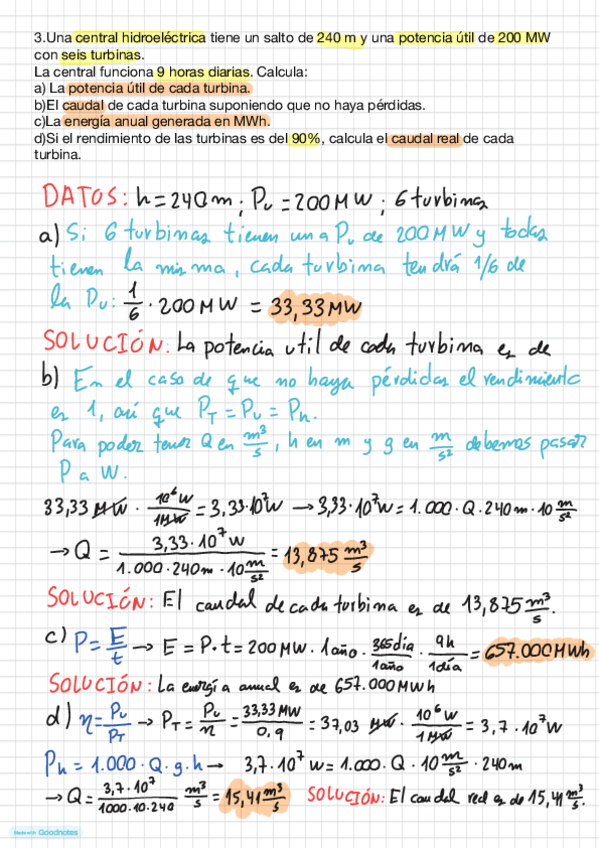 3.Una central hidroeléctrica tiene un salto de 240 m y una potencia útil de 200 MW
con seis turbinas.
La central funciona 9 horas diarias. Calcula:
a) La potencia útil de cada turbina.
b)El caudal de cada turbina suponiendo que no haya pérdidas.
c)La energía anual generada en MWh.
d)Si el rendimiento de las turbinas es del 90%, calcula el caudal real de cada
turbina.
DATOS: h = 240m ; Pu = 200MW ; 6 turbinas
a) Si 6 turbinas tienen una Pu de 200MW y todas
tienen la misma, cada turbina tendrá 1/6 de
la Pu: 1/6 · 200MW = 33,33MW
SOLUCIÓN: La potencia util de cada turbina es de
b) En el caso de que no haya pérdidas el rendimiento
es 1, así que PT = Pu = Ph.
Para poder tener Q en m³/s, h en m y g en m/s² debemos pasar
P a W.
33,33 MW · 10⁶W/1MW = 3,33·10⁷W → 3,33·10⁷W = 1.000·Q·240m·10 m/s²
→ Q = 3,33·10⁷W / 1.000·240m·10 m/s² = 13,875 m³/s
SOLUCIÓN: El caudal de cada turbina es de 13,875 m³/s.
c) P = E/t → E = P·t = 200MW · 1año · 365día/1año · 9h/1día = 657.000MWh
SOLUCIÓN: La energía anual es de 657.000MWh
d) η = Pu/PT → PT = Pu/η = 33,33MW/0,9 = 37,03 MW · 10⁶W/1MW = 3,7·10⁷W
Ph = 1.000·Q·g·h → 3,7·10⁷W = 1.000·Q·10 m/s²·240m
→ Q = 3,7·10⁷/1000·10·240 m³/s = 15,41 m³/s SOLUCIÓN: El caudal real es de 15,41 m³/s.
Made with Goodnotes